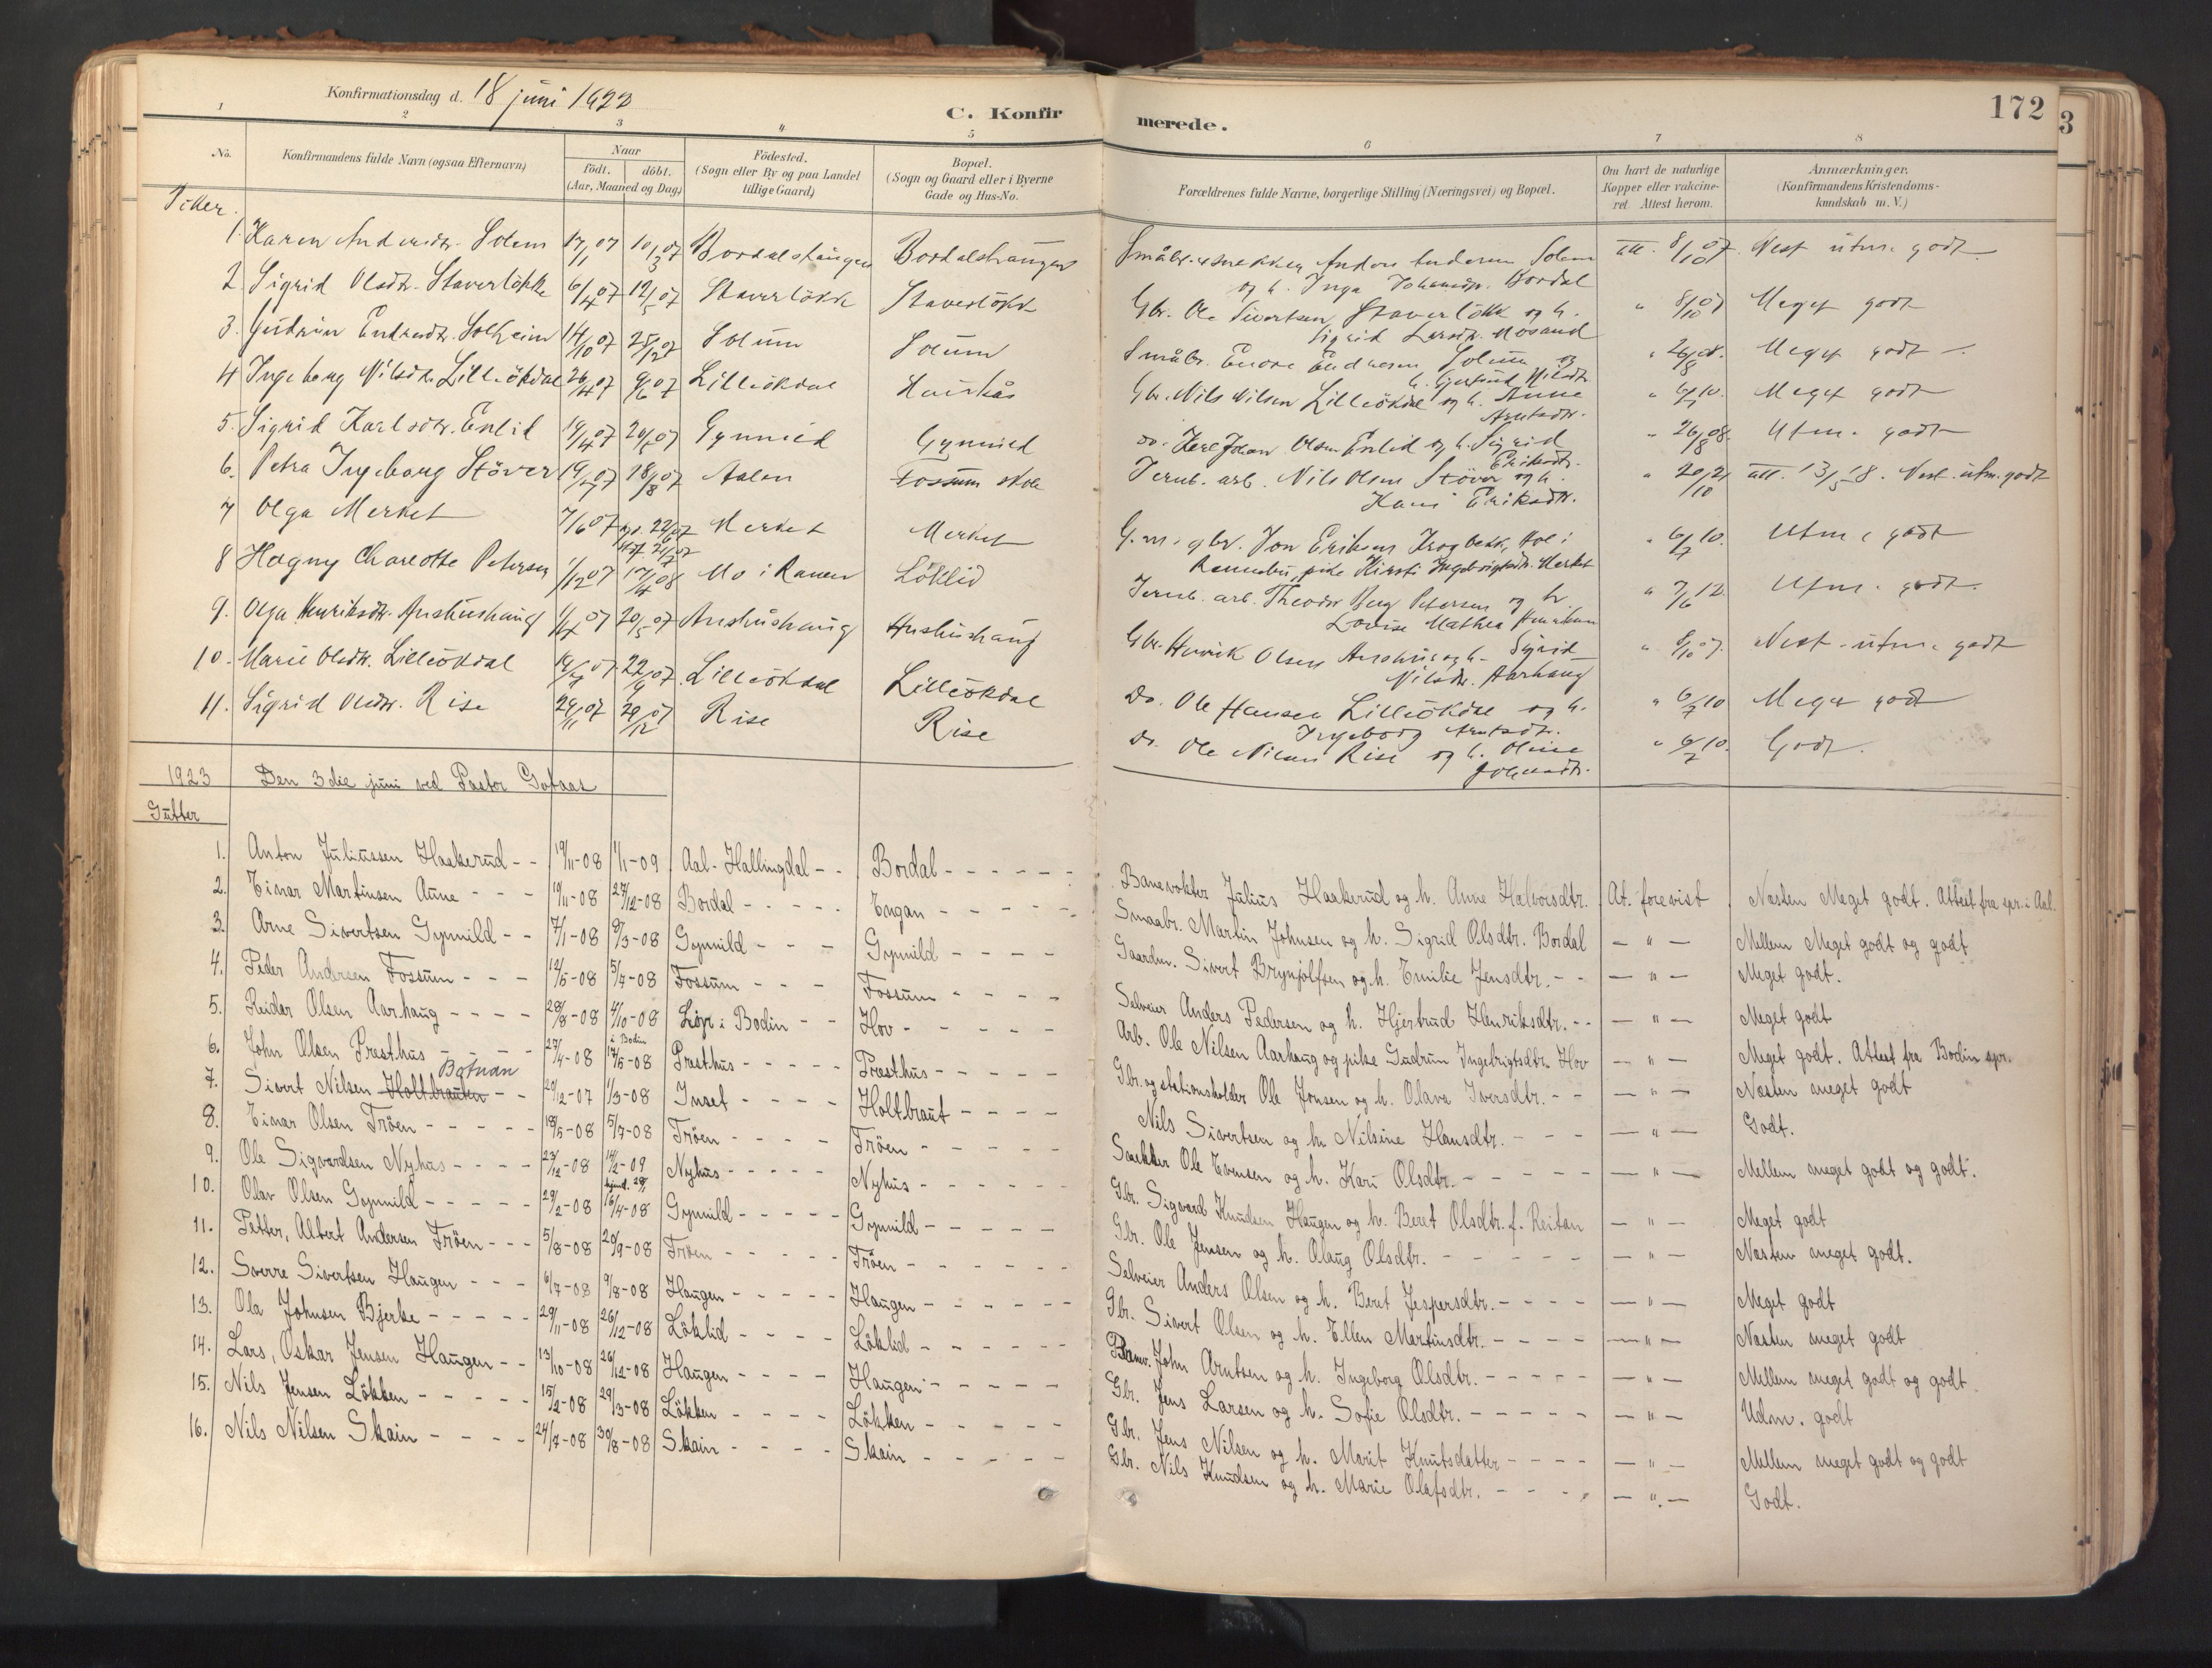 Konfirmationsdag d. 18 juni 1922
C. Konfirmerede.
172
3
1 2 3 4 5 6 7 8
No. Konfirmandens fulde Navn (ogsaa Efternavn) Naar födt. döbt. (Aar, Maaned og Dag) Födested. (Sogn eller By og paa Landet tillige Gaard) Bopæl. (Sogn og Gaard eller i Byerne Gade og Hus-No. Forældrenes fulde Navne, borgerlige Stilling (Næringsvei) og Bopæl. Om havt de naturlige Kopper eller vakcineret. Attest herom. Anmærkninger. (Konfirmandens Kristendomskundskab m. V.)
Piker.
1. Karen Andersdtr. Solem 17/1 07 10/3 07 Bordalshaugen Bordalshaugen Småbr. & snekker Anders Andersen Solem att. 8/10 07 Nest utm. godt
og h. Inga Johansdtr. Bordal
2. Sigrid Olsdtr. Staverløkk 6/4 07 12/5 07 Staverløkk Staverløkk Gbr. Ole Sivertsen Staverløkk og h. " 8/10 07 Meget godt
Sigrid Larsdtr. Mosand
3. Gudrun Endresdtr. Solheim 14/10 07 25/12 07 Solum Solum Småbr. Endre Endresen Solum og " 26/8 08. Meget godt
h. Gjertrud Nilsdtr.
4 Ingeborg Nilsdtr. Lilleökdal 26/4 07 9/6 07 Lilleökdal Gbr. Nils Nilsen Lilleökdal og h. Anne " 6/7 10. Meget godt
Arntsdtr.
5. Sigrid Karlsdtr. Enlid 19/4 07 20/5 07 Gynnild Gynnild do. Karl Johan Olsen Enlid og h. Sigrid " 26/8 08. Utm. godt
Eriksdtr.
6. Petra Ingeborg Støver 19/7 07 18/8 07 Aalen Fossum skole Jernb. arb. Nils Olsen Støver og h. " 20/10 21 att. 13/5 18. Nest utm. godt
Kari Eriksdtr.
7 Olga Merket 7/6 07 Merket Merket G. m. gbr. Jon Eriksen Krogbekk, Hol i " 6/7 10. Utm. godt
Rennebu, pike Kirsti Ingebrigtsdtr. Merket
8 Hagny Charlotte Petersen 1/12 07 17/4 08 Mo i Ranen Løklid Jernb. arb. Theodor Berg Petersen og h. " 7/6 12. Utm. godt.
Lovise Mathea Henriksen
9. Olga Henriksdtr. Aushushaug 1/4 07 20/5 07 Aushushaug Aushushaug Gbr. Henrik Olsen Aushus og h. Sigrid " 8/10 07. Nest utm. godt
Nilsdtr. Aarhaug
10. Marie Olsdtr. Lilleökdal 19/7 07 22/9 07 Lilleökdal Lilleökdal Do. Ole Hansen Lilleökdal og h. " 6/7 10 Meget godt
Ingeborg Arntsdtr.
11. Sigrid Olsdtr. Rise 24/11 07 29/12 07 Rise Rise do. Ole Nilsen Rise og h. Oline " 6/7 10. Godt.
Johnsdtr.
1923 Den 3die juni ved Pastor Gotaas
Gutter
1. Anton Juliussen Haakerud - - 19/11-08 1/1-09 Aal-Hallingdal - - Bordal - - - Banevokter Julius Haakerud og h. Anne Halvorsdtr. At. forevist Næsten Meget godt. Attest fra spr. i Aal.
2. Einar Martinsen Aune - - - 19/11-08 27/12-08 Bordal - - - Engan - - - Smaabr. Martin Johnsen og h. Sigrid Olsdtr. Bordal - " - Mellem Meget godt og godt
3. Arne Sivertsen Gynnild - - 7/1-08 9/3-08 Gynnild - - - Gynnild - - - Gaardm. Sivert Brynjolfsen og h. Emilie Jensdtr. - - - " - Meget godt.
4. Peder Andersen Fossum - - - 12/5-08 5/7-08 Fossum - - - Fossum - - - Selveier Anders Pedersen og h. Hjertrud Henriksdtr. - - - " - Meget godt
5. Reidar Olsen Aarhaug - - - 28/8-08 4/10-08 i Bodin Løp i Bodin - - Hov - - - Arb. Ole Nilsen Aarhaug og pike Gudrun Ingebrigtsdtr. Hov - " - Meget godt. Attest fra Bodin spr.
6. John Olsen Presthus - - 27/4-08 17/5-08 Presthus - - - Presthus - - - Gbr. og stationsholder Ole Jonsen og h. Olava Iversdtr. - - - " - Næsten meget godt
7. Sivert Nilsen Holtbrauten Botnan - - 20/12-07 1/3-08 Inset - - - Holtbraut - - - Nils Sivertsen og h. Nilsine Hansdtr. - - - " - Godt.
8. Einar Olsen Trøen - - - 18/5-08 5/7-08 Trøen - - - Trøen - - - Snekker Ole Evensen og h. Kari Olsdtr. - - - " - Mellem meget godt og godt.
9. Ole Sigvardsen Nyhus - - - 23/12-08 14/2-09 Nyhus - - - Nyhus - - - Gbr. Sigvard Knudsen Haugen og h. Beret Olsdtr. f. Reitan - " - Meget godt
10. Olav Olsen Gynnild - - - 29/2-08 16/4-08 Gynnild - - - Gynnild - - - Gbr. Ole Jensen og h. Olaug Olsdtr. - - - " - Næsten meget godt.
11. Petter, Albert Andersen Trøen - - - 5/8-08 20/9-08 Trøen - - - Trøen - - - Selveier Anders Olsen og h. Beret Jespersdtr. - - - " - Meget godt
12. Sverre Sivertsen Haugen - - - 6/7-08 9/8-08 Haugen - - - Haugen - - - Gbr. Sivert Olsen og h. Ellen Martinsdtr. - - - " - Næsten meget godt
13. Ola Johnsen Bjerke - - - 29/11-08 26/12-08 Løklid - - - Løklid - - - Banv. John Arntsen og h. Ingeborg Olsdtr. - - - " - Mellem meget godt og godt
14. Lars, Oskar Jensen Haugen - - 13/10-08 26/12-08 Haugen - - - Haugen - - - Gbr. Jens Larsen og h. Sofie Olsdtr. - - - " - Udm. godt
15. Nils Jensen Løkken - - - 15/2-08 29/3-08 Løkken - - - Løkken - - - Gbr. Jens Nilsen og h. Marit Knutsdatter - - - " - Mellem meget godt og godt
16. Nils Nilsen Skain - - - 24/7-08 30/8-08 Skain - - - Skain - - - Gbr. Nils Knudsen og h. Marie Olafsdtr. - - - " - Godt.